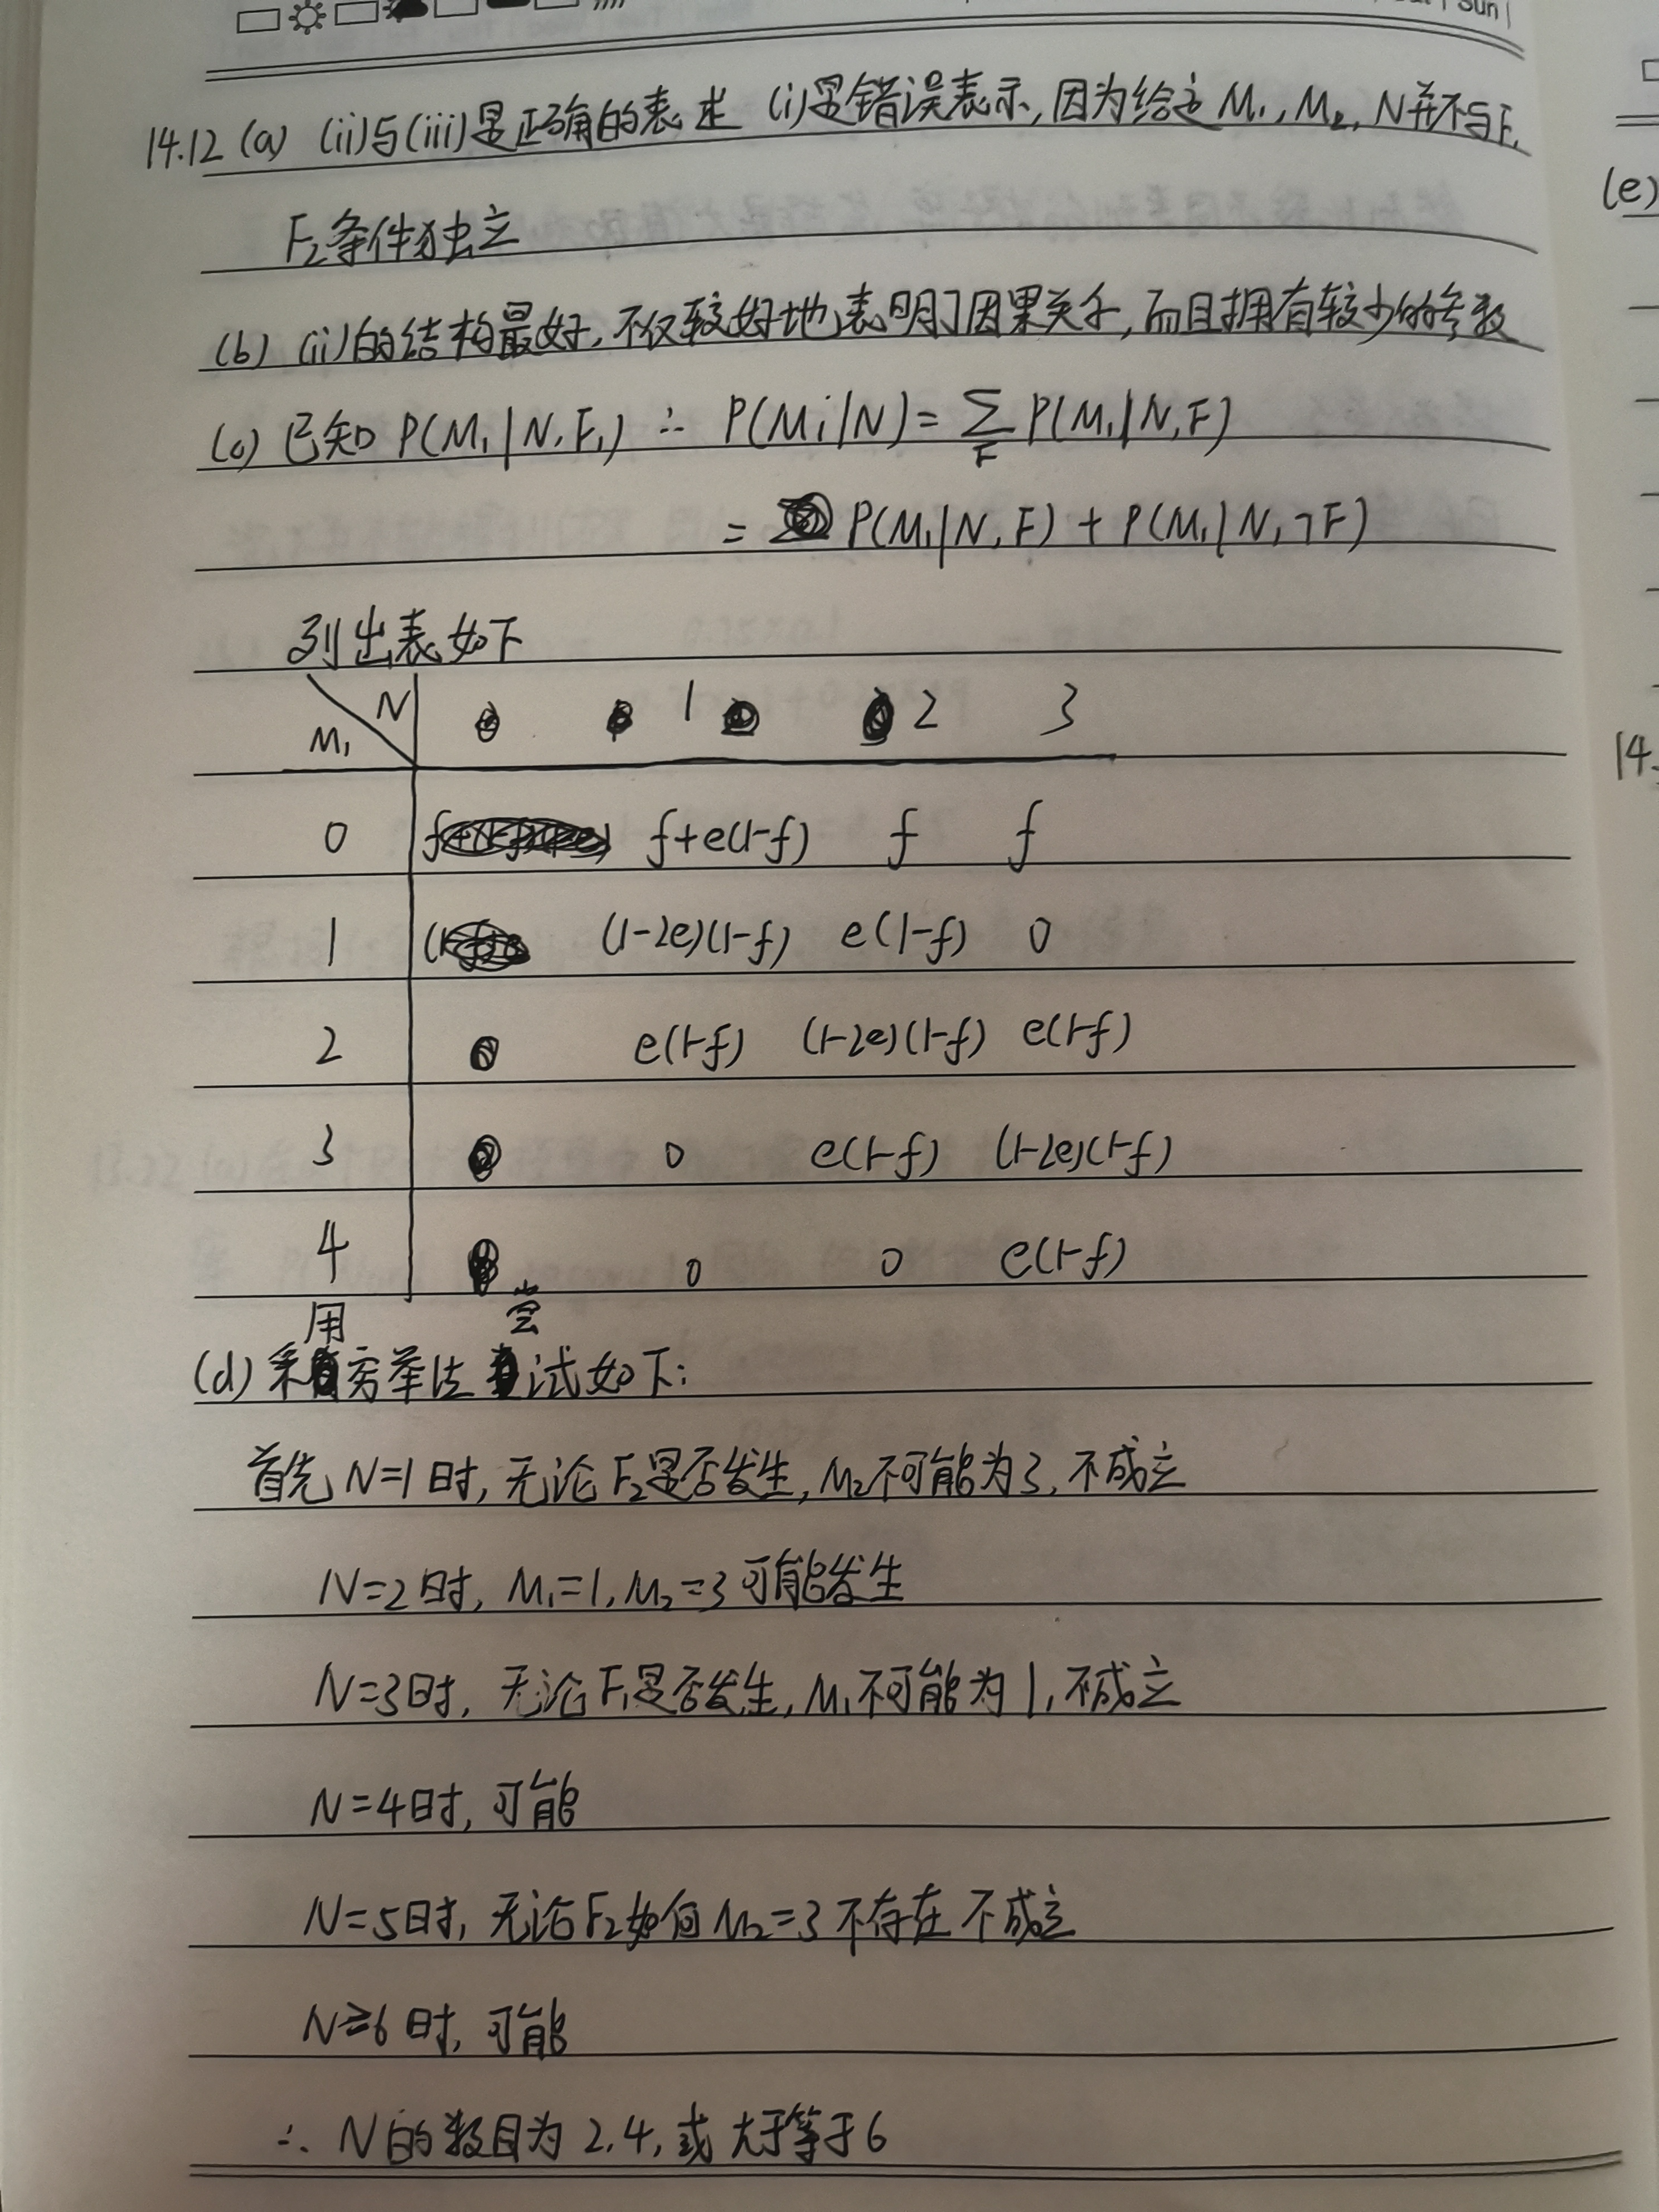 Sun
14.12 (a) (ii)与(iii)是正确的表述 (i)是错误表示,因为给定M₁,M₂,N并不与F₁
F₂条件独立
(b) (ii)的结构最好,不仅较好地表明了因果关系,而且拥有较少的参数
(c) 已知 P(M₁|N,F₁) ∴ P(Mi|N)=∑_F P(M₁|N,F)
= P(M₁|N,F) + P(M₁|N,¬F)
列出表如下
M₁ N 1 2 3
0 f+e(1-f) f f
1 (1-2e)(1-f) e(1-f) 0
2 e(1-f) (1-2e)(1-f) e(1-f)
3 0 e(1-f) (1-2e)(1-f)
4 0 0 e(1-f)
(d) 采用穷举法尝试如下:
首先N=1时,无论F₂是否发生,M₂不可能为3,不成立
N=2时,M₁=1,M₂=3可能发生
N=3时,无论F₁是否发生,M₁不可能为1,不成立
N=4时,可能
N=5时,无论F₂如何M₂=3不存在 不成立
N≥6时,可能
∴ N的数目为2,4,或大于等于6
(e)
14.